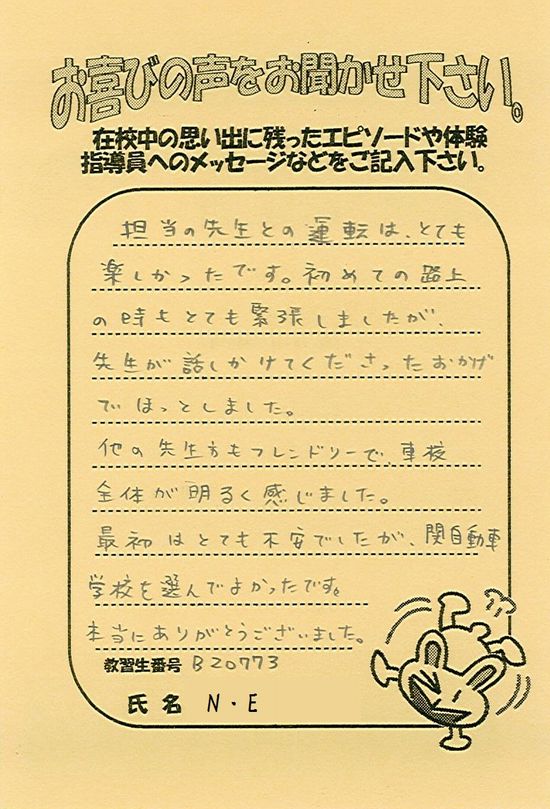 お喜びの声をお聞かせ下さい。
在校中の思い出に残ったエピソードや体験
指導員へのメッセージなどをご記入下さい。
担当の先生との運転は、とても
楽しかったです。初めての路上
の時もとても緊張しましたが、
先生が話しかけてくださったおかげ
でほっとしました。
他の先生方もフレンドリーで、車校
全体が明るく感じました。
最初はとても不安でしたが、関自動車
学校を選んでよかったです。
本当にありがとうございました。
教習生番号 B20773
氏名 N・E